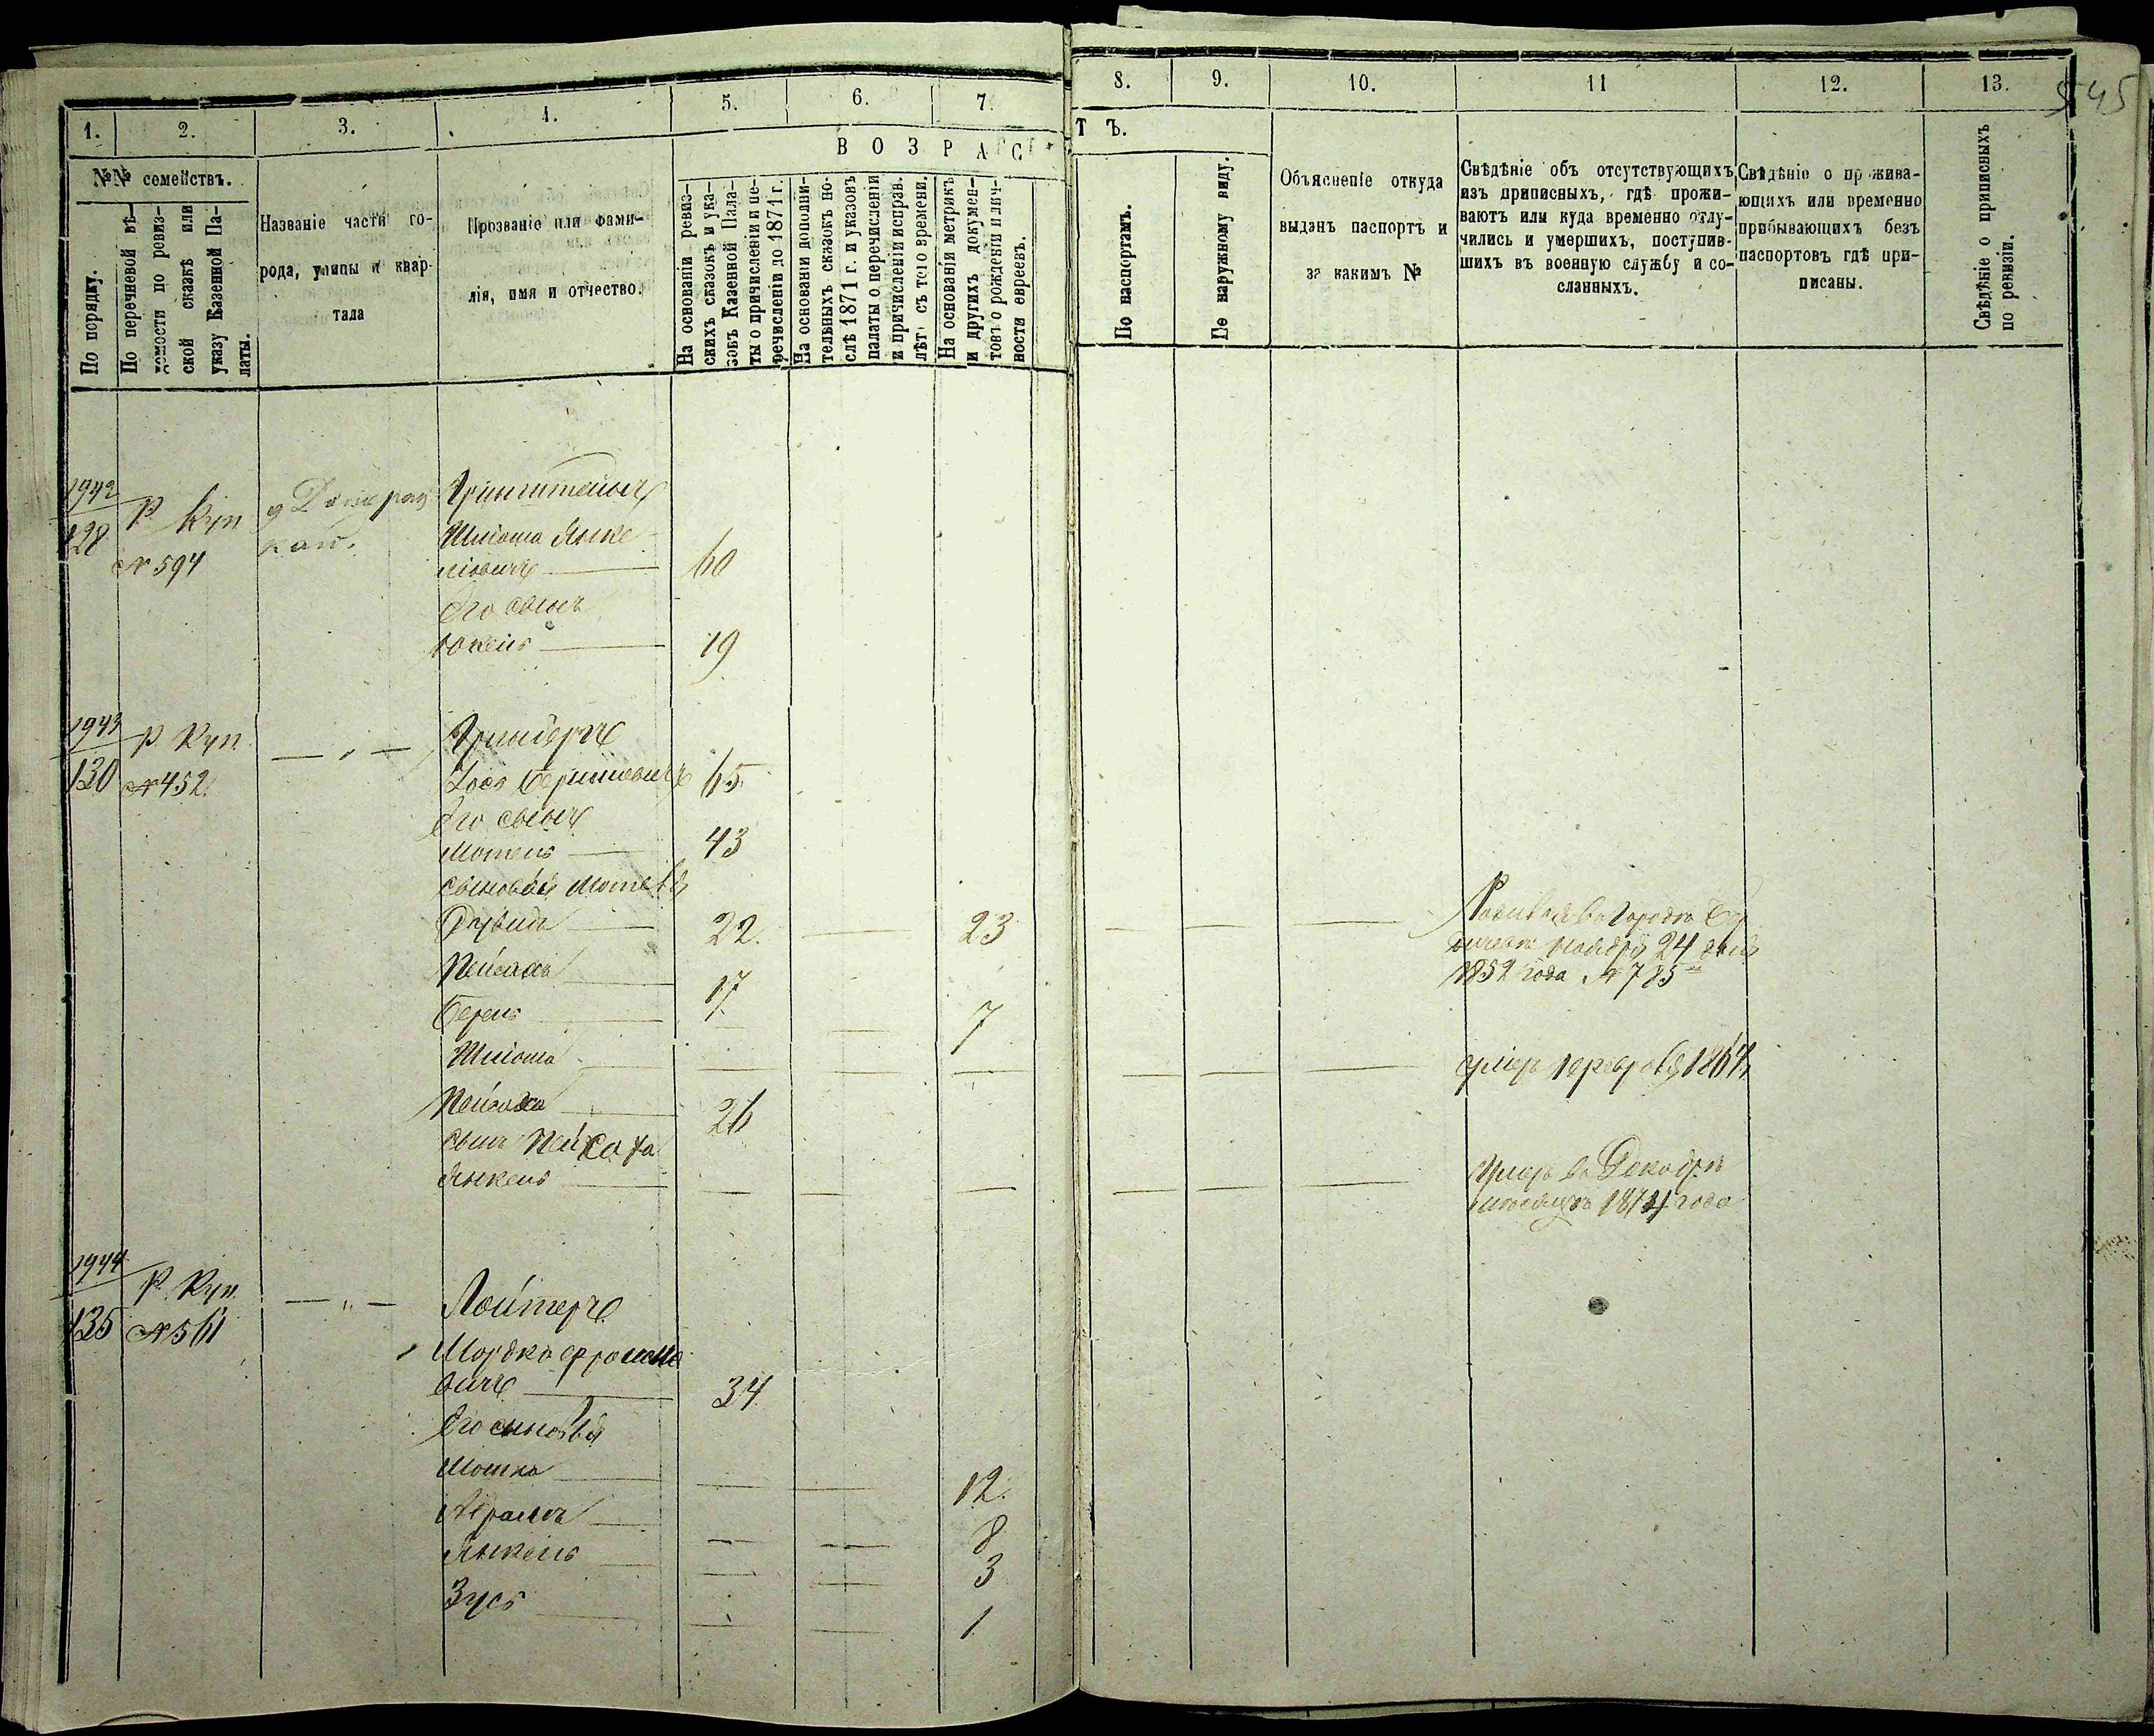 1.
2.
3.
4.
5.
6.
7.
8.
9.
10.
11
12.
13.
545
ВОЗРАСТЪ.
№№ семействъ.
По порядку.
По перечневой вѣ-
домости по ревиз-
ской сказкѣ или
указу Казенной Па-
латы.
Названіе части го-
рода, улицы и квар-
тала
Прозваніе или фами-
лія, имя и отчество.
На основаніи ревиз-
скихъ сказокъ и ука-
зовъ Казенной Пала-
ты о причисленіи и пе-
речисленіи до 1871 г.
На основаніи дополни-
тельныхъ сказокъ по-
слѣ 1871 г. и указовъ
палаты о перечисленіи
и причисленіи исправ.
лѣтъ съ того времени.
На основаніи метрикъ
и другихъ докумен-
товъ о рожденіи и лич-
ности евреевъ.
По паспортамъ.
По наружному виду.
Объясненіе откуда
выданъ паспортъ и
за какимъ №
Свѣдѣніе объ отсутствующихъ
изъ приписныхъ, гдѣ прожи-
ваютъ или куда временно отлу-
чились и умершихъ, поступив-
шихъ въ военную службу и со-
сланныхъ.
Свѣдѣніе о прожива-
ющихъ или временно
прибывающихъ безъ
паспортовъ гдѣ при-
писаны.
Свѣдѣніе о приписныхъ
по ревизіи.
1942
128
Р Куп
№ 594
Гринштейнъ
Шлема Янке-
левичъ 60
Его сынъ
Юкель 19
1943
130
Р Куп
№ 452.
Гринбергъ
Іось Берковичъ 65
Его сынъ
Мотель 43
сыновья Мотеля
Давидъ 22. 23
ноября 24 дня
1852 года № 785
Пейсахъ 17
Берель 7
Шлема
умеръ февраля 1867
Пейсахъ 26
сынъ Пейсаха
Янкель
Умеръ въ Декабрѣ
мѣсяцѣ 1874 года
1944
135
Р. Куп.
№ 561
Лойтеръ
Мордко
вичъ 34
Его сыновья
Мошко 12.
Абрамъ 8
Янкель 3
Зусь 1